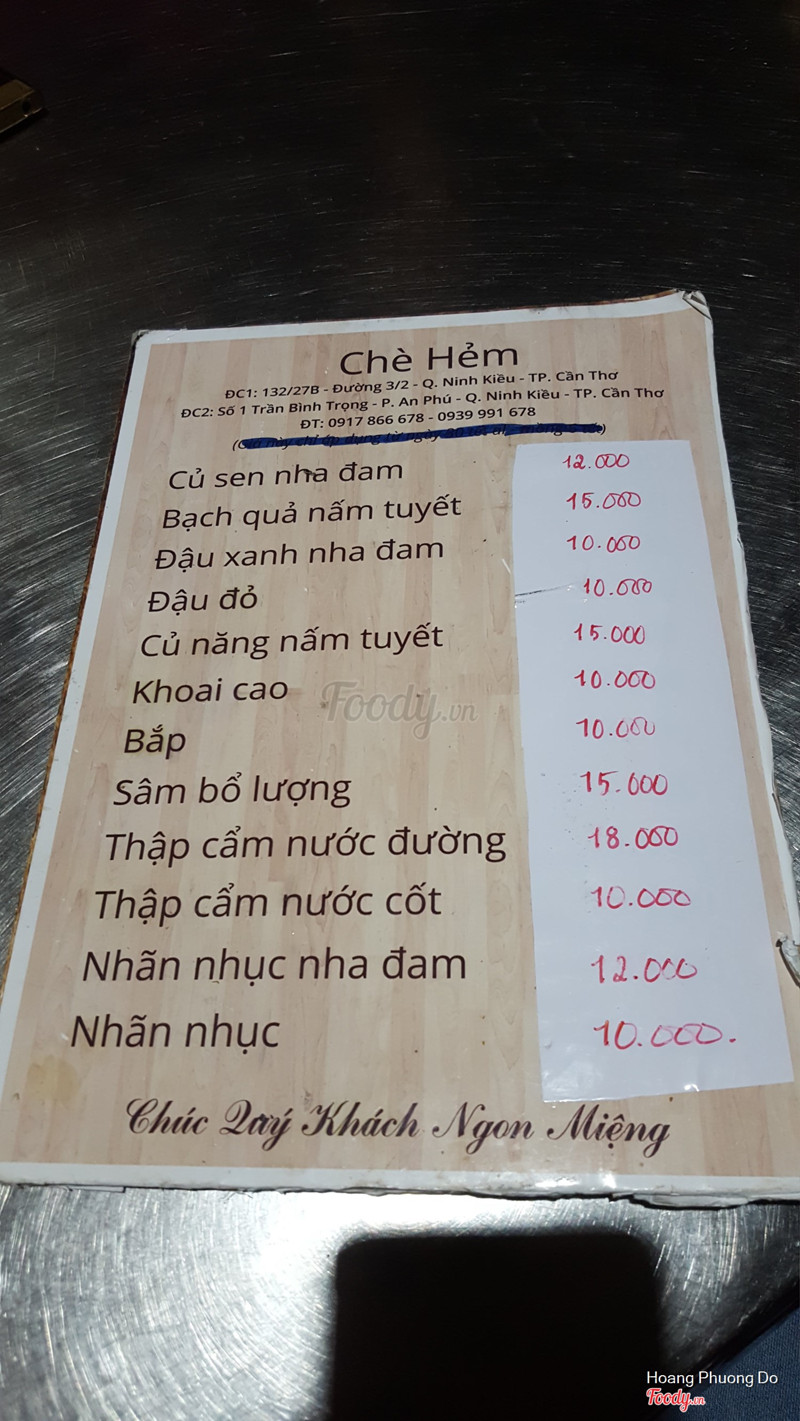 Chè Hẻm
ĐC1: 132/27B - Đường 3/2 - Q. Ninh Kiều - TP. Cần Thơ
ĐC2: Số 1 Trần Bình Trọng - P. An Phú - Q. Ninh Kiều - TP. Cần Thơ
ĐT: 0917 866 678 - 0939 991 678
Củ sen nha đam 12.000
Bạch quả nấm tuyết 15.000
Đậu xanh nha đam 10.000
Đậu đỏ 10.000
Củ năng nấm tuyết 15.000
Khoai cao 10.000
Foody.vn
Bắp 10.000
Sâm bổ lượng 15.000
Thập cẩm nước đường 18.000
Thập cẩm nước cốt 10.000
Nhãn nhục nha đam 12.000
Nhãn nhục 10.000.
Chúc Quý Khách Ngon Miệng
Hoang Phuong Do
Foody.vn